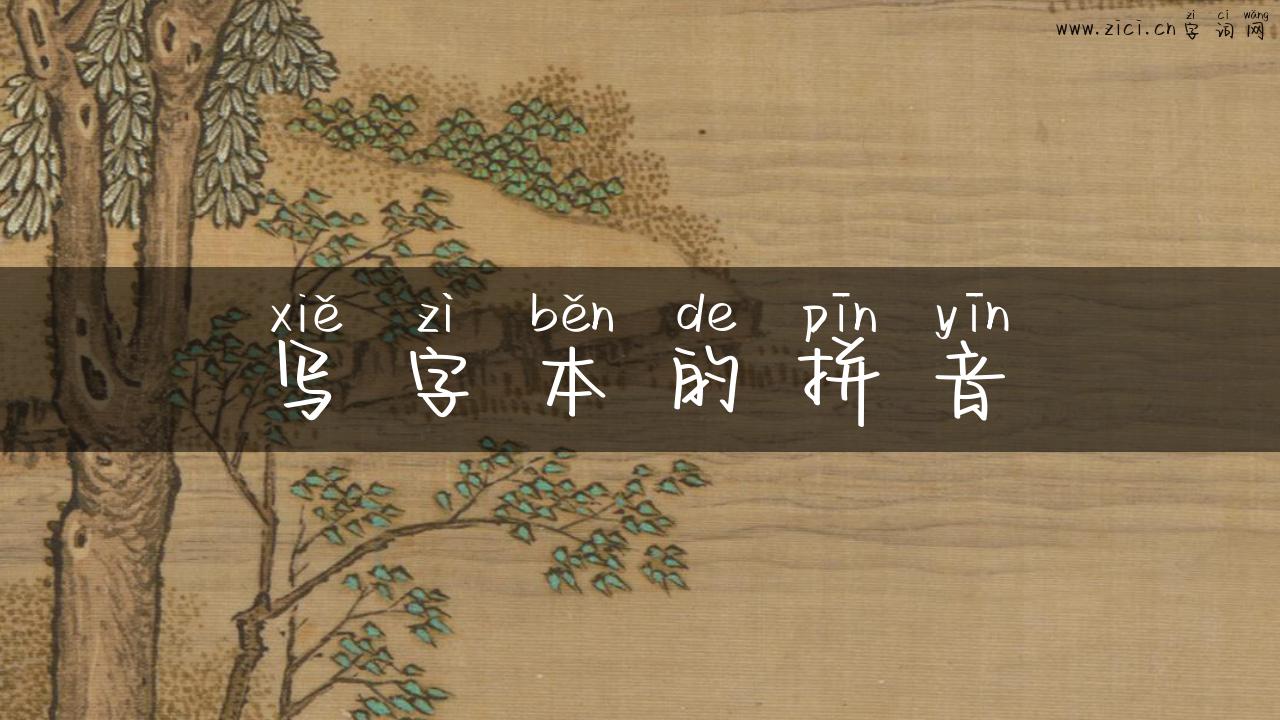 zì cí wǎng
www.zici.cn 字词网
xiě zì běn de pīn yīn
写字本的拼音